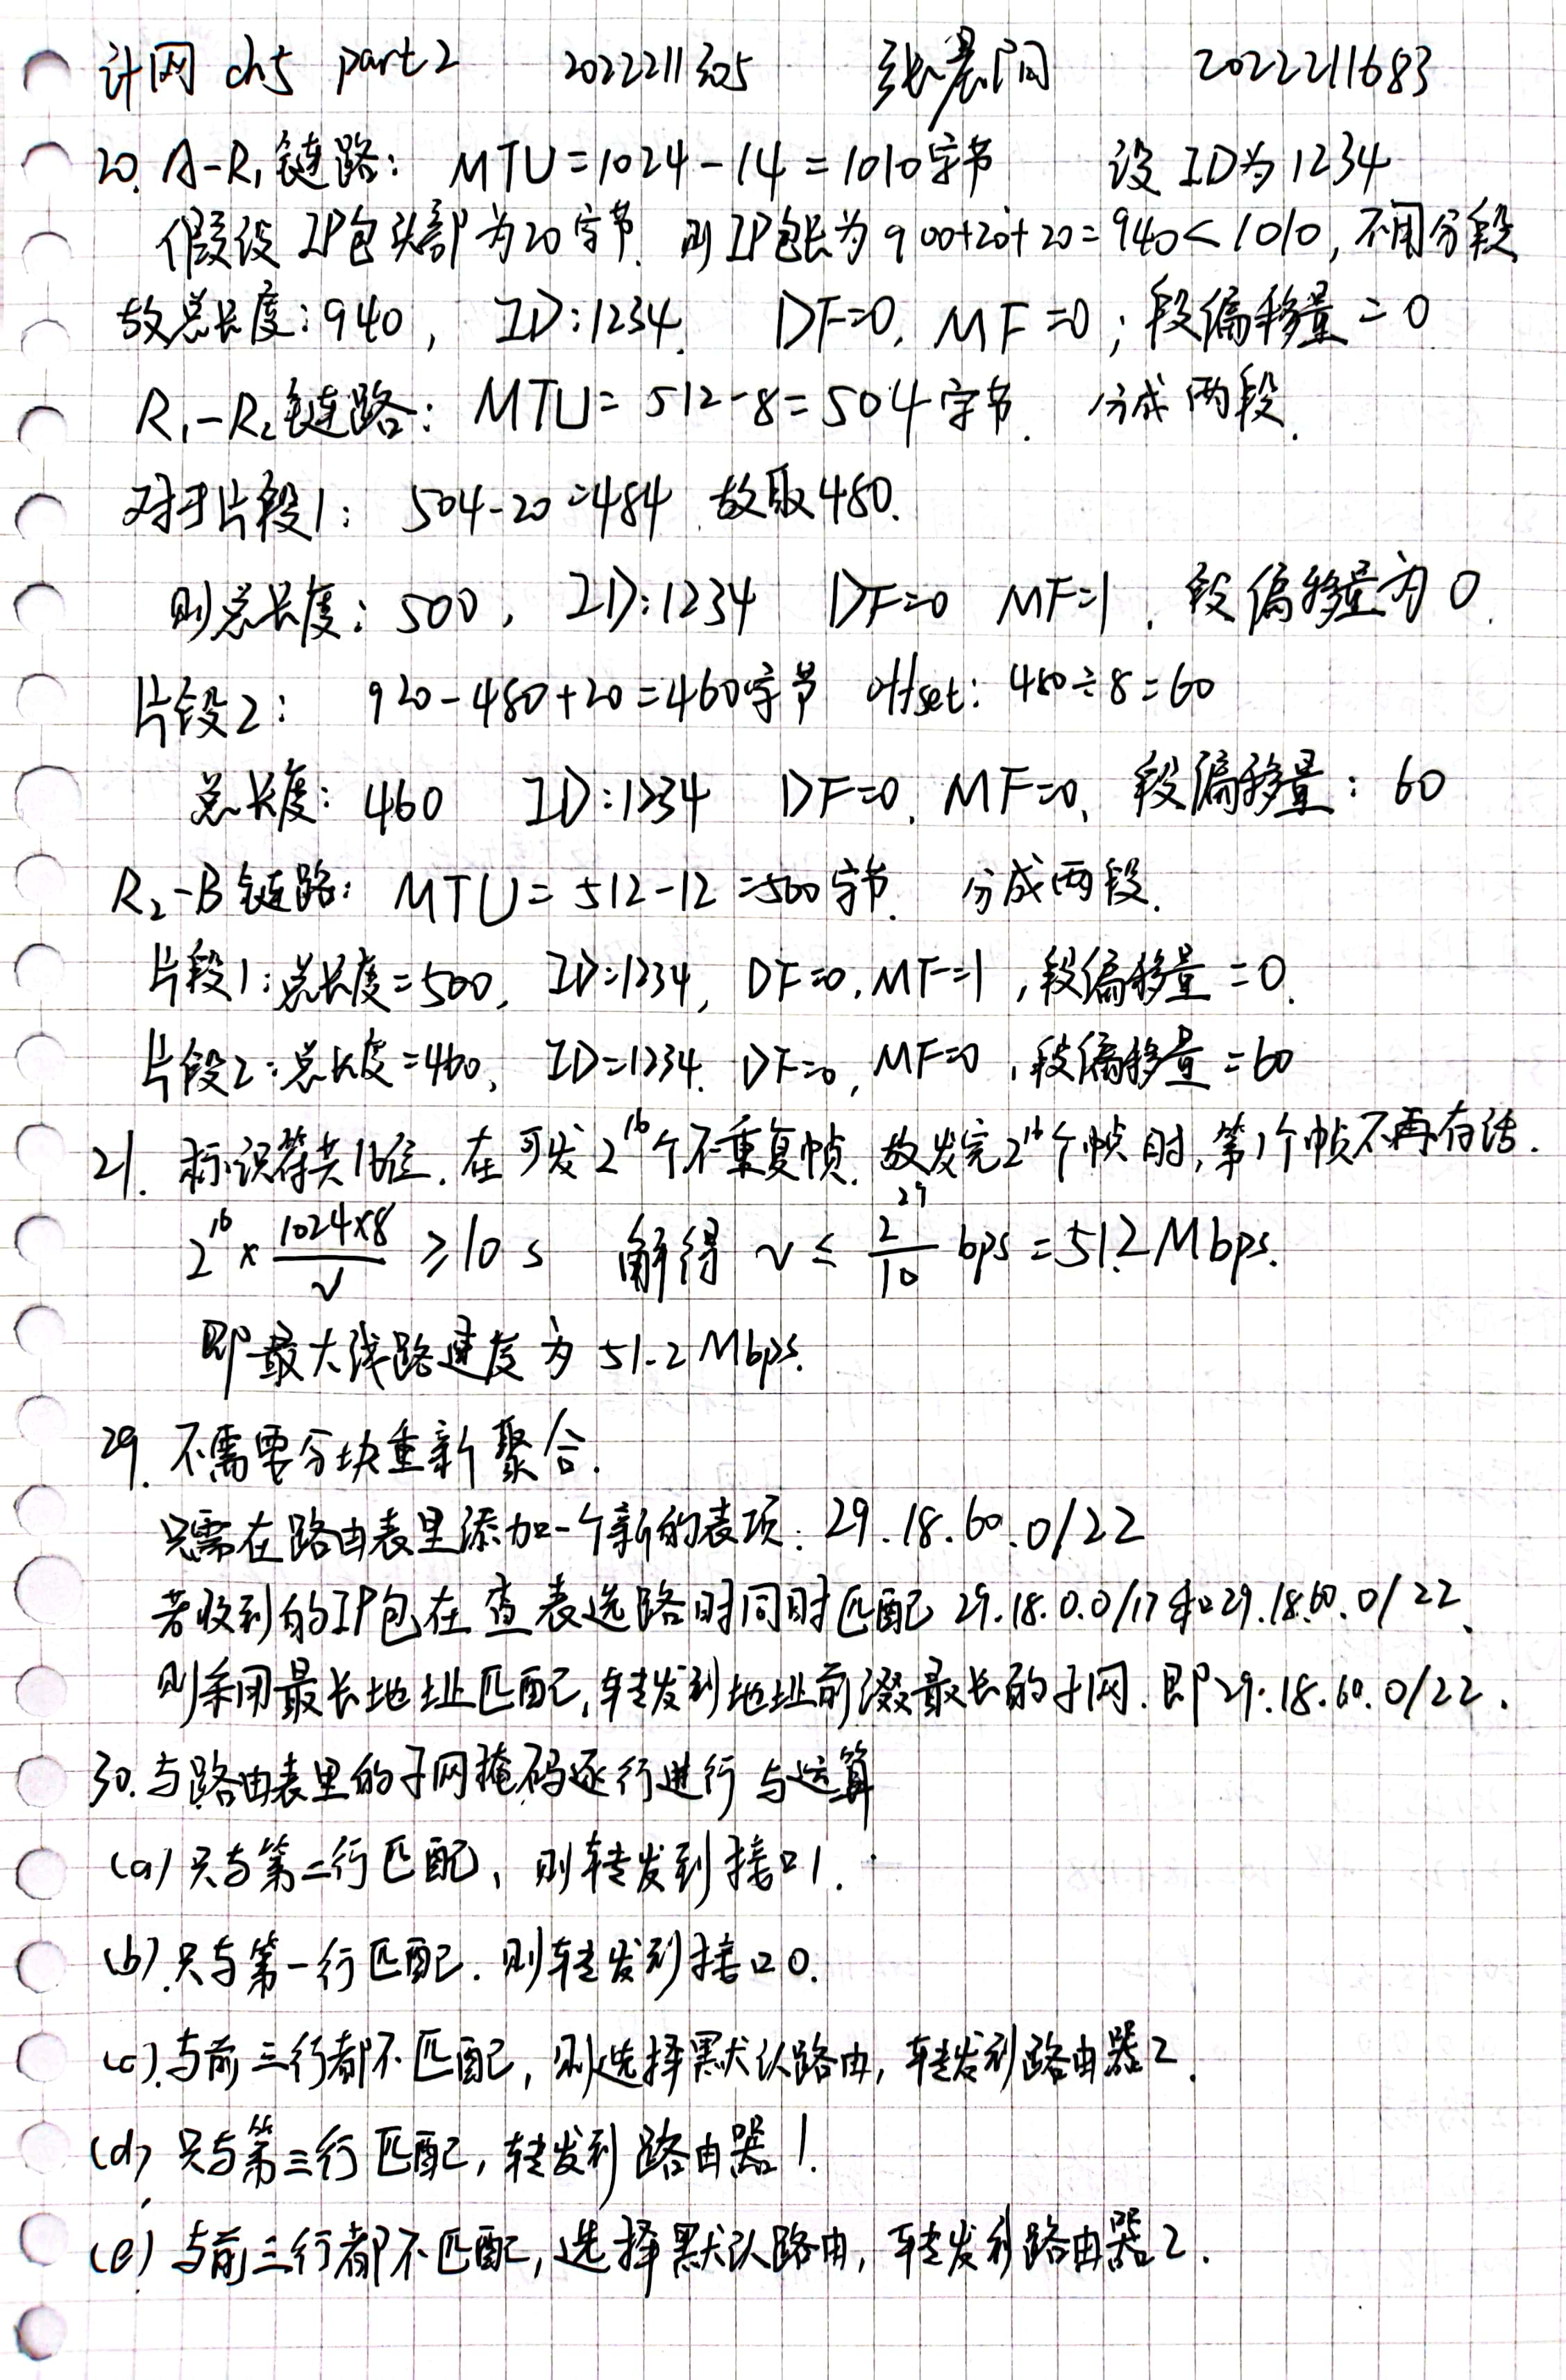 计网 ch5 part2 2022211305 张晨阳 2022211683
20. A-R₁链路: MTU=1024-14=1010字节 设ID为1234
假设IP包头部为20字节. 则IP包长为900+20+20=940<1010, 不用分段
故总长度:940, ID:1234. DF=0. MF=0; 段偏移量=0
R₁-R₂链路: MTU=512-8=504字节. 分成两段.
对于片段1: 504-20=484 故取480.
则总长度: 500, ID:1234 DF=0 MF=1. 段偏移量为0.
片段2: 920-480+20=460字节 offset: 480÷8=60
总长度: 460 ID:1234 DF=0. MF=0. 段偏移量: 60
R₂-B链路: MTU=512-12=500字节. 分成两段.
片段1:总长度=500, ID:1234, DF=0, MF=1, 段偏移量=0.
片段2:总长度=460, ID=1234. DF=0, MF=0, 段偏移量=60
21. 标识符共16位. 在可发2¹⁶个不重复帧. 故发完2¹⁶个帧时, 第1个帧不再存活.
2¹⁶×(1024×8)/v ≥10 s 解得 v ≤ 2²⁹/10 bps = 51.2 Mbps.
即最大线路速度为 51.2 Mbps.
29. 不需要分块重新聚合.
只需在路由表里添加一个新的表项: 29.18.60.0/22
若收到的IP包在查表选路时同时匹配29.18.0.0/17和29.18.60.0/22.
则采用最长地址匹配,转发到地址前缀最长的子网. 即29.18.60.0/22.
30. 与路由表里的子网掩码逐行进行与运算
(a) 只与第二行匹配, 则转发到接口1.
(b). 只与第一行匹配. 则转发到接口0.
(c). 与前三行都不匹配, 则选择默认路由, 转发到路由器2.
(d) 只与第三行匹配, 转发到路由器1.
(e) 与前三行都不匹配, 选择默认路由, 转发到路由器2.